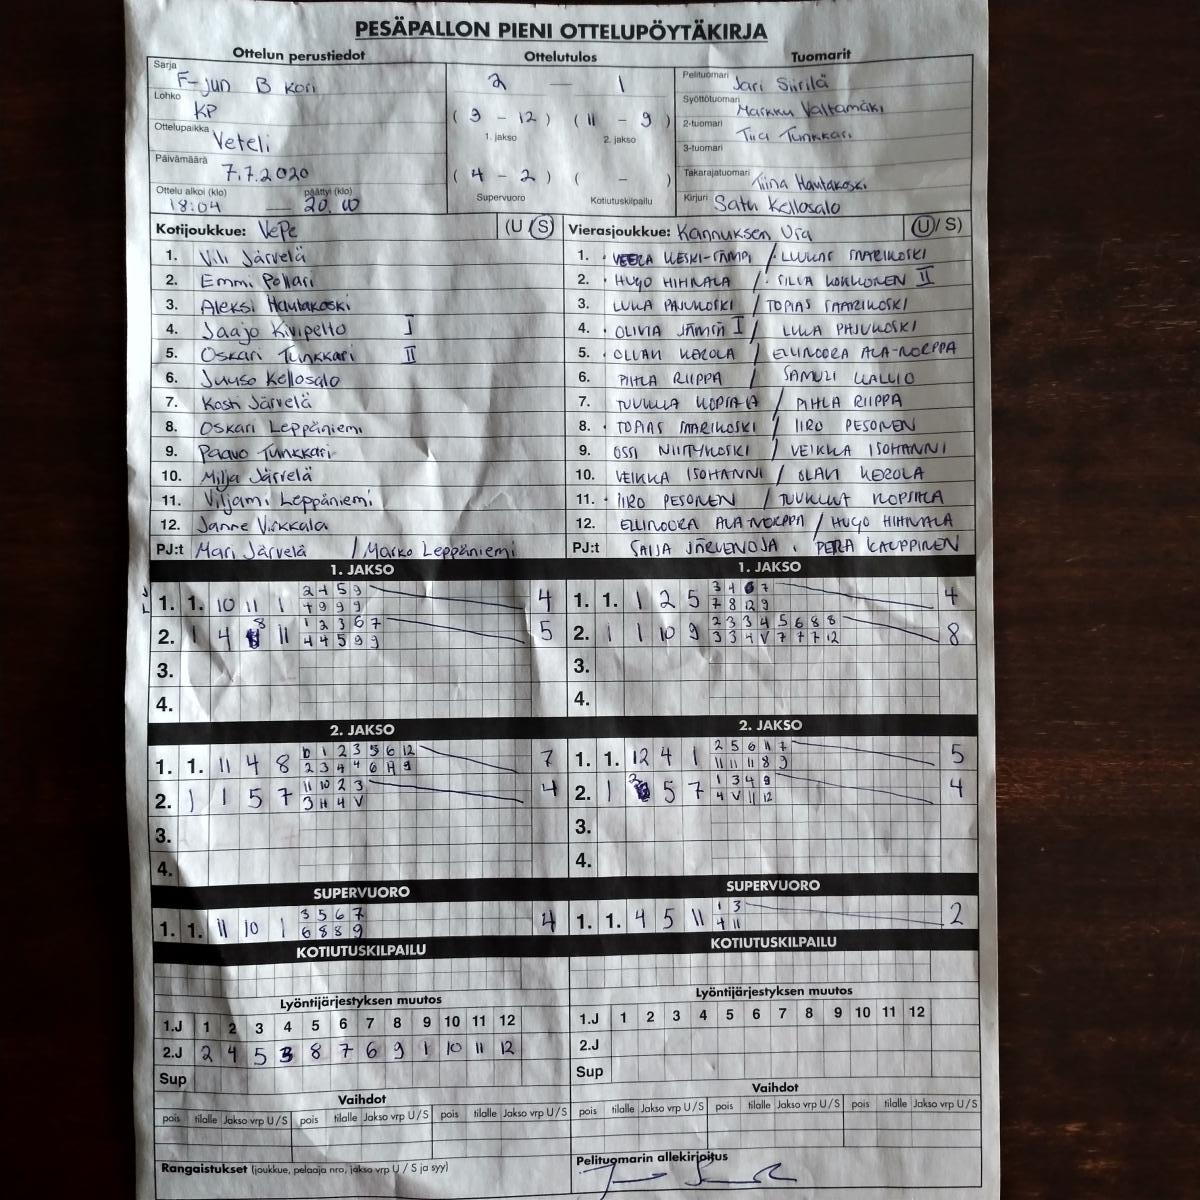 PESÄPALLON PIENI OTTELUPÖYTÄKIRJA
Ottelun perustiedot Ottelutulos Tuomarit
Sarja F-jun B Kori
Lohko KP
Ottelupaikka Veteli
Päivämäärä 7.7.2020
Ottelu alkoi (klo) päättyi (klo)
18:04 — 20.00
2 — 1
( 9 - 12 ) ( 11 - 9 )
1. jakso 2. jakso
( 4 - 2 ) ( - )
Supervuoro Kotiutuskilpailu
Pelituomari Jari Siirilä
Syöttötuomari Markku Valtamäki
2-tuomari Tiia Tunkkari
3-tuomari
Takarajatuomari Tiina Hautakoski
Kirjuri Satu Kellosalo
Kotijoukkue: VePe (U S)
1. Vili Järvelä
2. Emmi Pollari
3. Aleksi Hautakoski
4. Jaajo Kivipelto I
5. Oskari Tunkkari II
6. Juuso Kellosalo
7. Kosti Järvelä
8. Oskari Leppäniemi
9. Paavo Tunkkari
10. Milja Järvelä
11. Viljami Leppäniemi
12. Janne Virkkala
PJ:t Mari Järvelä / Marko Leppäniemi
Vierasjoukkue: Kannuksen Ura (U/S)
1. VEERA KESKI-SÄMPI / LUUKAS SAARIKOSKI
2. HUGO HIHNALA / SILLA KOKKONEN II
3. LUKA PAJUKOSKI / TOPIAS SAARIKOSKI
4. OLIVIA JÄMSÄ I / LUKA PAJUKOSKI
5. OLLAN KEROLA / ELLINOORA ALA-NORPPA
6. PIHLA RIIPPA / SAMULI KALLIO
7. TUUKKA KOPSALA / PIHLA RIIPPA
8. TOPIAS SAARIKOSKI / IIRO PESONEN
9. OSSI NIITYKOSKI / VEIKKA ISOHANNI
10. VEIKKA ISOHANNI / OLAVI KEROLA
11. IIRO PESONEN / TUUKKA KOPSALA
12. ELLINOORA ALA-NORPPA / HUGO HIHNALA
PJ:t SAIJA JÄRVENOJA, PERA KAUPPINEN
1. JAKSO
1. 1. 10 11 1 2 4 5 9 4
4 9 9 9
2. 1 4 8 11 1 2 3 6 7 5
4 4 5 9 9
3.
4.
1. JAKSO
1. 1. 1 2 5 3 4 6 7 4
7 8 12 9
2. 1 1 10 9 2 3 3 4 5 6 8 8 8
3 3 4 V 7 7 7 12
3.
4.
2. JAKSO
1. 1. 11 4 8 10 1 2 3 5 6 12 7
2 3 4 4 6 11 9
2. 1 1 5 7 11 10 2 3 4
3 11 4 V
3.
4.
2. JAKSO
1. 1. 12 4 1 2 5 6 11 7 5
11 11 11 8 9
2. 1 2 5 7 1 3 4 9 4
4 V 11 12
3.
4.
SUPERVUORO
1. 1. 11 10 1 3 5 6 7 4
6 8 8 9
SUPERVUORO
1. 1. 4 5 11 1 3 2
4 11
KOTIUTUSKILPAILU
KOTIUTUSKILPAILU
Lyöntijärjestyksen muutos
1.J 1 2 3 4 5 6 7 8 9 10 11 12
2.J 2 4 5 3 8 7 6 9 1 10 11 12
Sup
Lyöntijärjestyksen muutos
1.J 1 2 3 4 5 6 7 8 9 10 11 12
2.J
Sup
Vaihdot
pois tilalle Jakso vrp U/S pois tilalle Jakso vrp U/S pois tilalle Jakso vrp U/S
Vaihdot
pois tilalle Jakso vrp U/S pois tilalle Jakso vrp U/S pois tilalle Jakso vrp U/S
Rangaistukset (joukkue, pelaaja nro, jakso vrp U / S ja syy)
Pelituomarin allekirjoitus